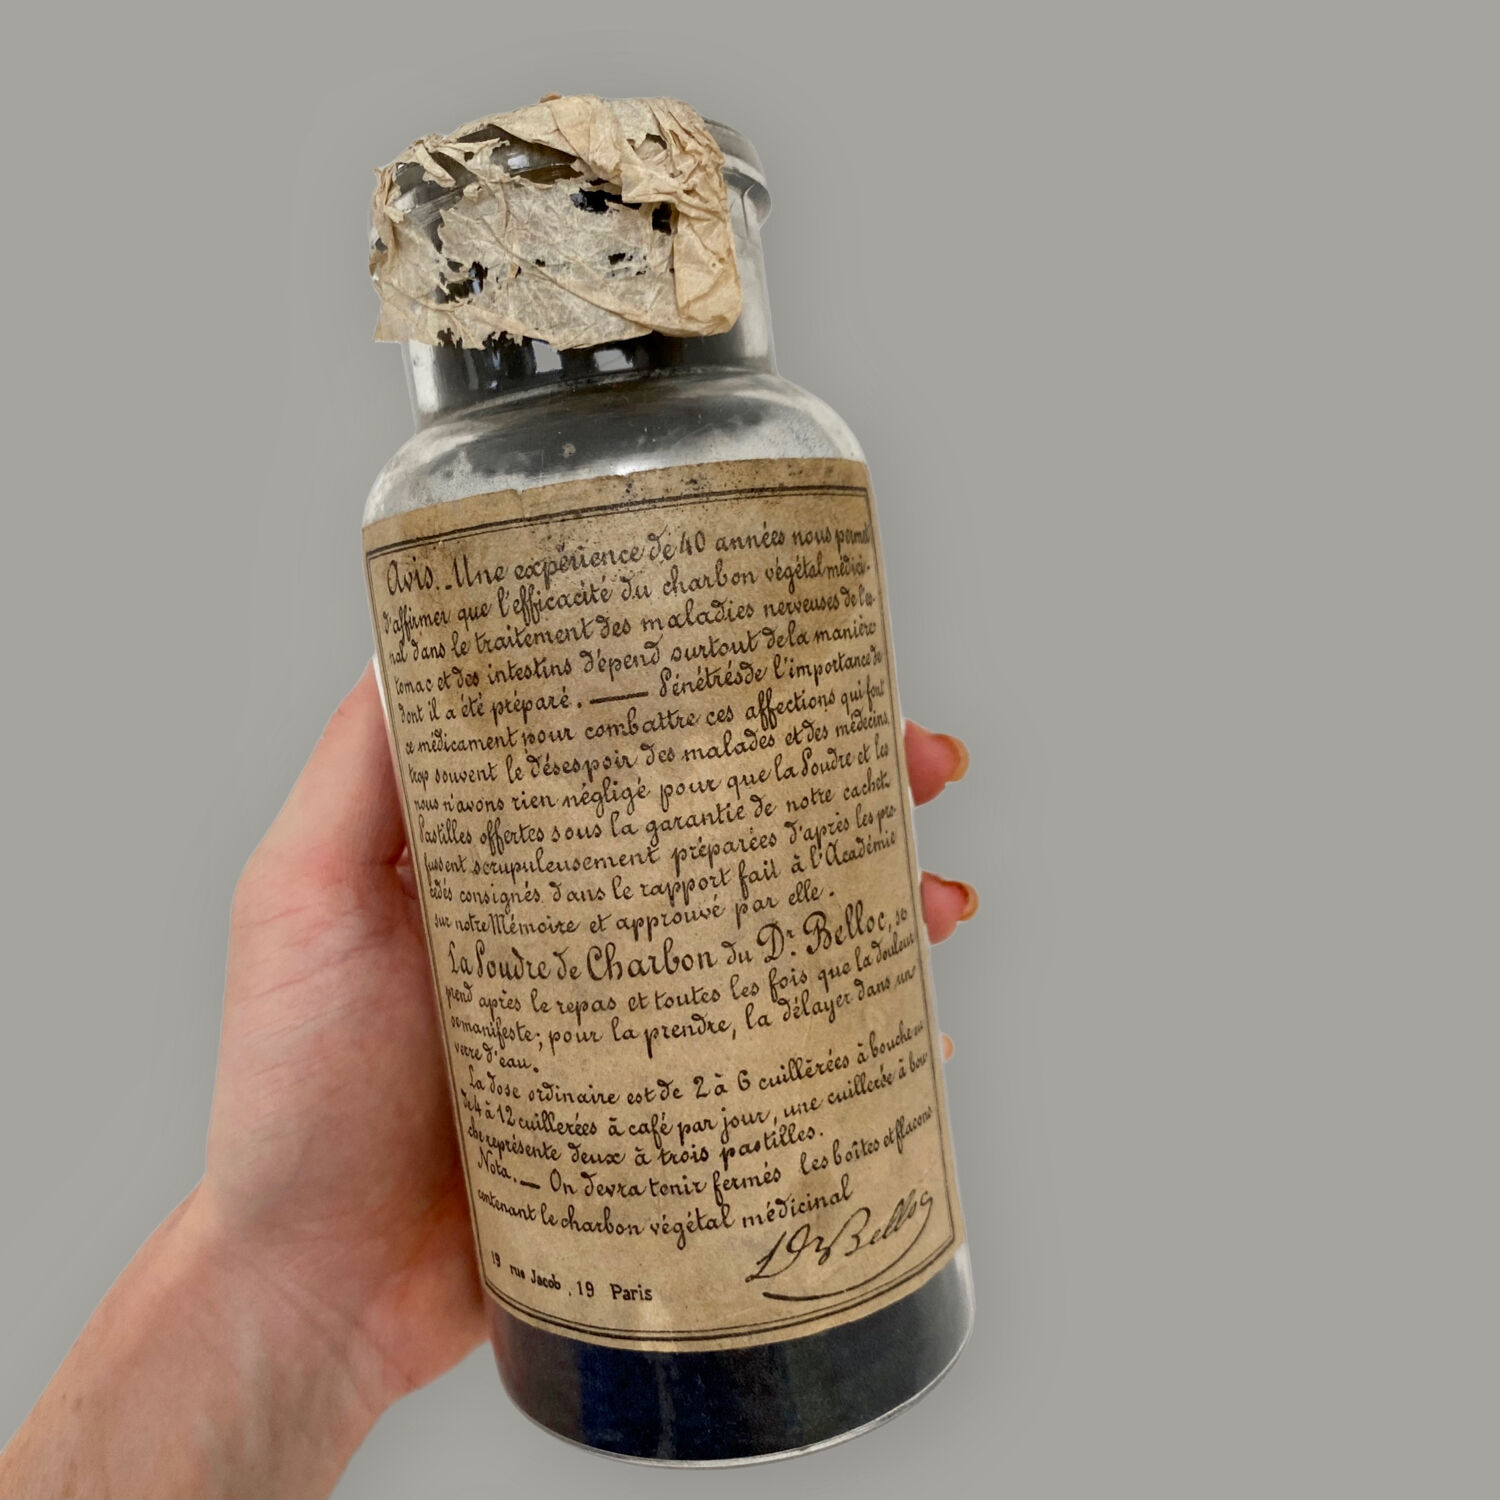 Avis._Une expérience de 40 années nous permet
d'affirmer que l'efficacité du charbon végétal médici-
nal dans le traitement des maladies nerveuses de l'es-
tomac et des intestins dépend surtout de la manière
dont il a été préparé. — Pénétrés de l'importance de
ce médicament pour combattre ces affections qui font
trop souvent le désespoir des malades et des médecins,
nous n'avons rien négligé pour que la Poudre et les
Pastilles offertes sous la garantie de notre cachet
fussent scrupuleusement préparées d'après les pro-
cédés consignés dans le rapport fait à l'Académie
sur notre Mémoire et approuvé par elle.
La Poudre de Charbon du Dr. Belloc, se
prend après le repas et toutes les fois que la douleur
se manifeste; pour la prendre, la délayer dans un
verre d'eau.
La dose ordinaire est de 2 à 6 cuillèrées à bouche ou
de 4 à 12 cuillerées à café par jour, une cuillerée à bou-
che représente deux à trois pastilles.
Nota._ On devra tenir fermés les boîtes et flacons
contenant le charbon végétal médicinal
Dr Belloc
19 rue Jacob, 19 Paris